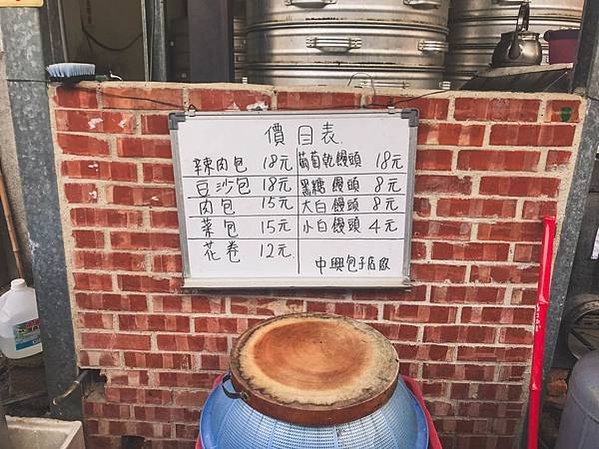 價目表
辣肉包 18元 葡萄乾饅頭 18元
豆沙包 18元 黑糖饅頭 8元
肉包 15元 大白饅頭 8元
菜包 15元 小白饅頭 4元
花卷 12元
中興包子店啟